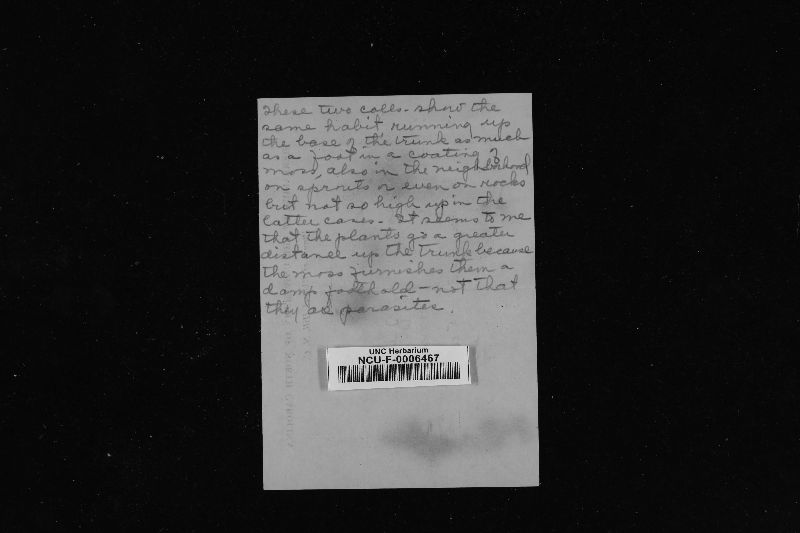 These two colls. show the
same habit, running up
the base of the trunk as much
as a foot in a coating of
moss, also in the neighborhood
on sprouts or even on rocks
but not so high up in the
latter cases. It seems to me
that the plants go a greater
distance up the trunk because
the moss furnishes them a
damp foothold - not that
they are parasites.
UNC Herbarium
NCU-F-0006467
OF NORTH CAROLINA